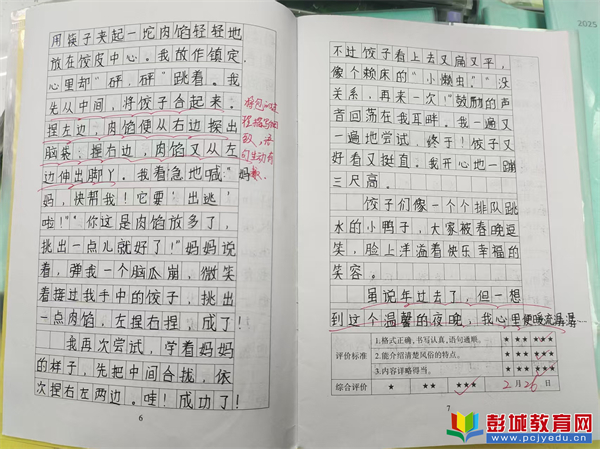 用筷子夹起一坨肉馅轻轻地
放在饺皮中心。我故作镇定，
心里却“砰，砰”跳着。我
先从中间，将饺子合起来。
捏左边，肉馅便从右边探出
脑袋；捏右边，肉馅又从左
边伸出脚丫。我着急地喊“妈
妈，快帮我！它要‘出逃’
啦！”“你这是肉馅放多了，
挑出一点儿就好了！”妈妈说
着，弹我一个脑瓜崩，微笑
着接过我手中的饺子，挑出
一点肉馅，左捏右捏，成了！
我再次尝试，学着妈妈
的样子，先把中间合拢，依
次捏右左两边。哇！成功了！
6
不过饺子看上去又扁又平，
像个赖床的“小懒虫。”“没
关系，再来一次！”鼓励的声
音回荡在我耳畔。我一遍又
一遍地尝试，终于！饺子又
好看又挺直。我开心地一蹦
三尺高。
饺子们像一个个排队跳
水的小鸭子，大家被春晚逗
笑，脸上洋溢着快乐幸福的
笑容。
虽说年过去了，但一想
到这个温馨的夜晚，我心里便暖流潺潺
评价标准
1.格式正确，书写认真，语句通顺。 ★★★★★
2.能介绍清楚风俗的特点。 ★★★★★
3.内容详略得当。 ★★★★★
综合评价 ★ ★★ ★★★ 2月26日
7
2025
彭城教育网
www.pcjyedu.cn